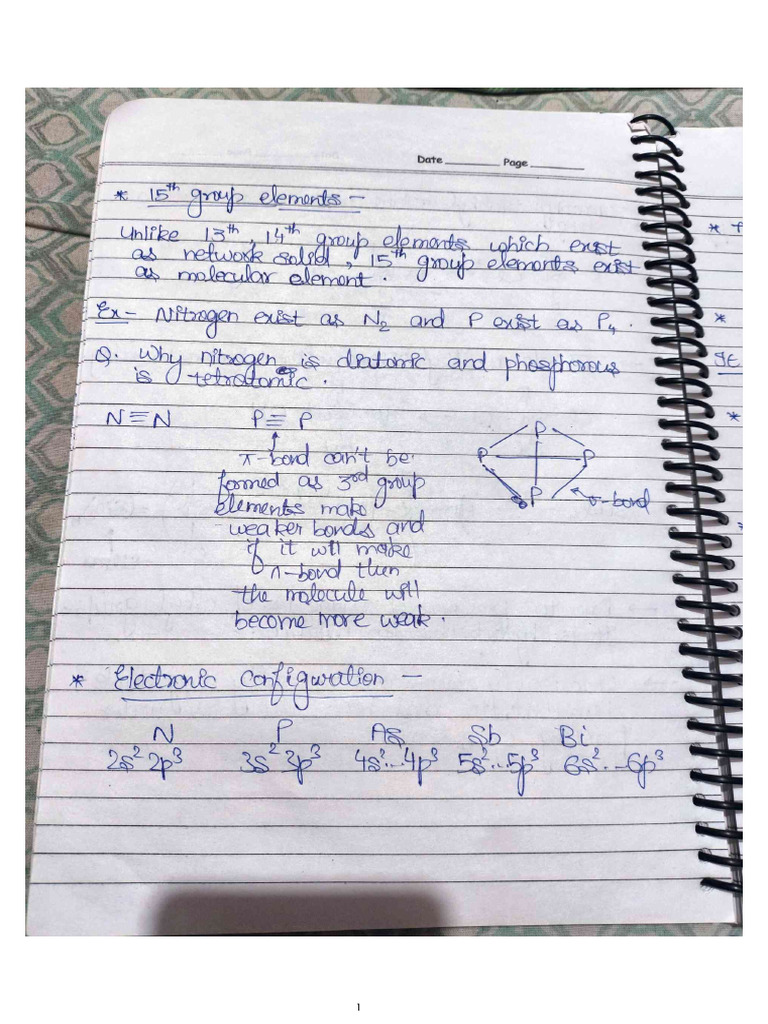 Date Page
* 15th group elements -
Unlike 13th, 14th group elements which exist
as network solid, 15th group elements exist
as molecular element.
Ex- Nitrogen exist as N2 and P exist as P4.
Q. Why nitrogen is diatomic and phosphorous
is tetratomic.
N≡N P≡P
π-bond can't be
formed as 3rd group
elements make
weaker bonds and
if it will make
π-bond then
the molecule will
become more weak.
P
P P
P
σ-bond
* Electronic configuration -
N P As Sb Bi
2s² 2p³ 3s² 3p³ 4s²...4p³ 5s²...5p³ 6s²...6p³
1